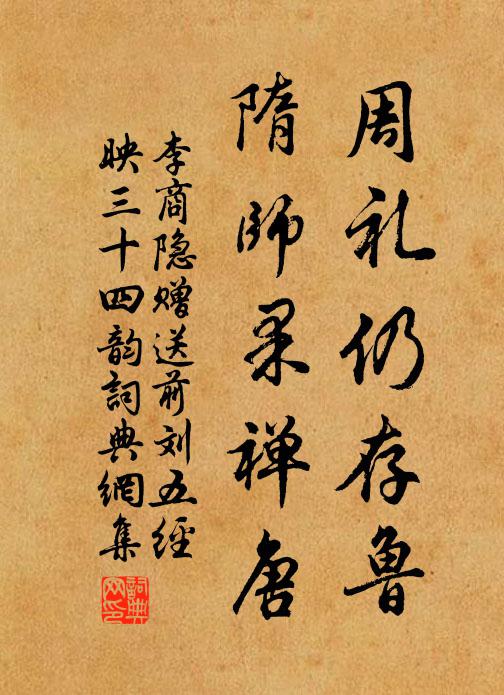 周礼仍存鲁
隋师果禅唐
李商隐赠送前刘五經
映三十四韵詞典網集
詞典網印